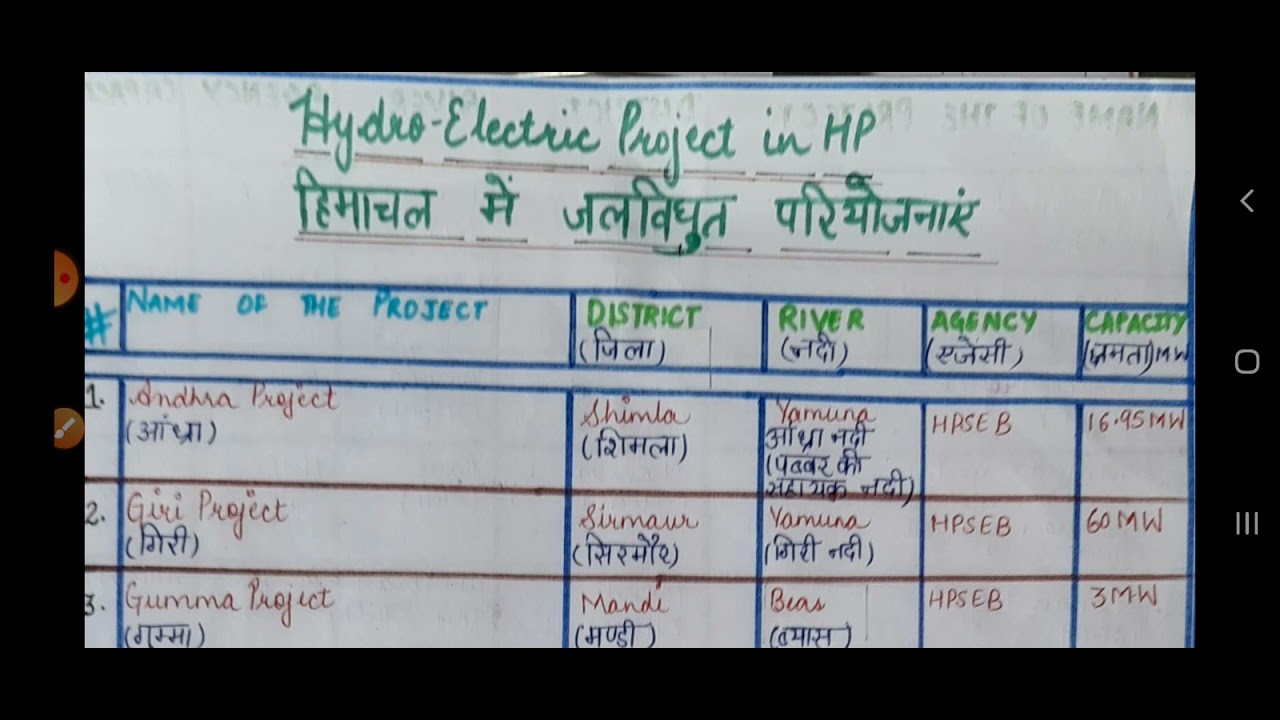 Hydro-Electric Project in HP
हिमाचल में जलविघुत परियोजनाएं
# NAME OF THE PROJECT DISTRICT RIVER AGENCY CAPACITY
(जिला) (नदी) (एजेंसी) (क्षमता)MW
1. Andhra Project Shimla Yamuna HPSEB 16.95MW
(आंध्रा) (शिमला) आंध्रा नदी
(पब्बर की
सहायक नदी)
2. Giri Project Sirmaur Yamuna HPSEB 60MW
(गिरी) (सिरमौर) (गिरी नदी)
3. Gumma Project Mandi Beas HPSEB 3MW
(गुम्मा) (मण्डी) (ब्यास)